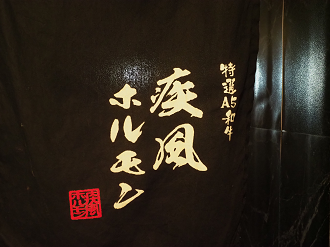 特選A5和牛
疾風
ホルモン